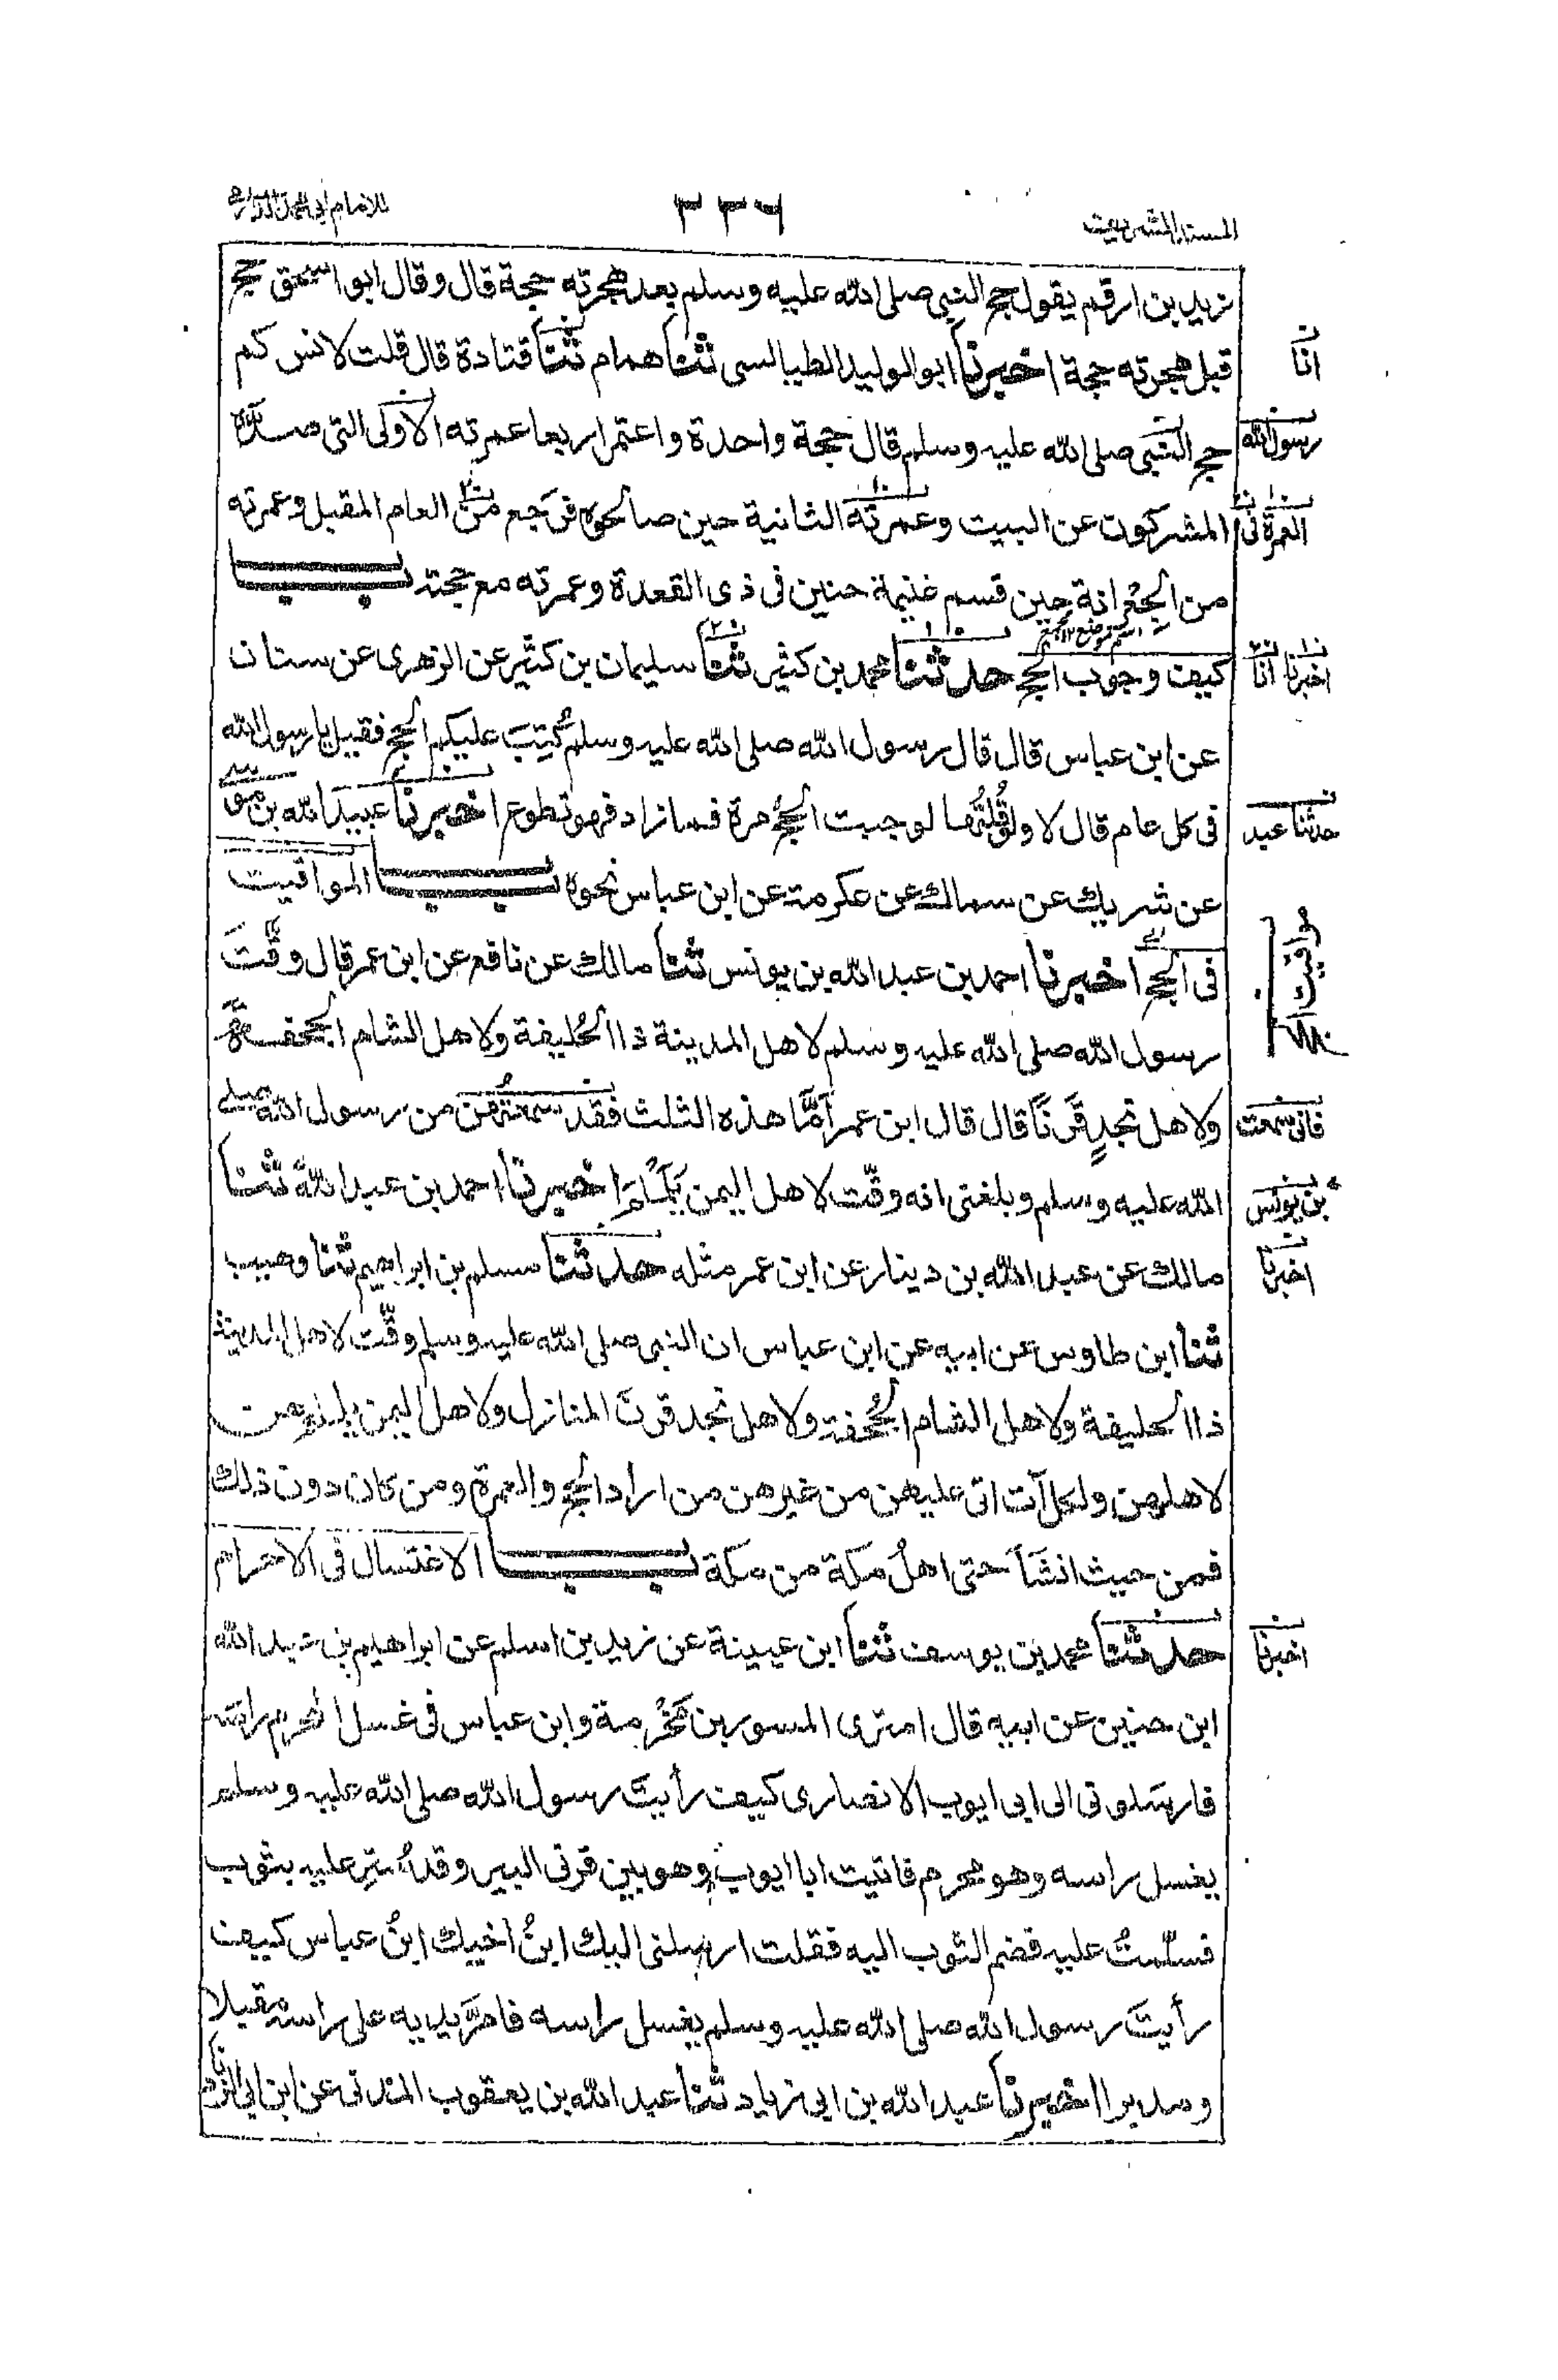 المسند الشريف
٣٣٦
للامام
زيد بن ارقم يقول حج النبي صلى الله عليه وسلم بعد هجرته حجة قال وقال ابو اسحق حج
قبل هجرته حجة اخبرنا ابو الوليد الطيالسى ثنا همام ثنا قتادة قال قلت لانس كم
حج النبي صلى الله عليه وسلم قال حجة واحدة واعتمر اربعا عمرته الاولى التى صده
المشركون عن البيت وعمرته الثانية حين صالحوه فرجع من العام المقبل وعمرته
من الجعرانة حين قسم غنيمة حنين فى ذى القعدة وعمرته مع حجته باب
كيف وجوب الحج حدثنا محمد بن كثير ثنا سليمان بن كثير عن الزهرى عن سنان
عن ابن عباس قال قال رسول الله صلى الله عليه وسلم كُتِبَ عليكم الحج فقيل يا رسول الله
فى كل عام قال لا ولو قُلتُها لوجبت الحجُّ مرة فما زاد فهو تطوع اخبرنا عبيد الله بن موسى
عن شريك عن سماك عن عكرمة عن ابن عباس نحوه باب المواقيت
فى الحج اخبرنا احمد بن عبد الله بن يونس ثنا مالك عن نافع عن ابن عمر قال وقَّتَ
رسول الله صلى الله عليه وسلم لاهل المدينة ذا الحُليفة ولاهل الشام الجحفة
ولاهل نجدٍ قَرْنًا قال قال ابن عمر اَمَّا هذه الثلث فقد سمعتُهن من رسول الله صلى
الله عليه وسلم وبلغنى انه وقّت لاهل اليمن يَلَمْلَمَ اخبرنا احمد بن عبد الله ثنا
مالك عن عبد الله بن دينار عن ابن عمر مثله حدثنا مسلم بن ابراهيم ثنا وهيب
ثنا ابن طاوس عن ابيه عن ابن عباس ان النبى صلى الله عليه وسلم وقّت لاهل المدينة
ذا الحليفة ولاهل الشام الجُحفة ولاهل نجد قرنَ المنازل ولاهل اليمن يلملم هن
لاهلهن ولكل آت اتى عليهن من غيرهن من اراد الحج والعمرة ومن كان دون ذلك
فمن حيث انشَأَ حتى اهلُ مكة من مكة باب الاغتسال فى الاحرام
حدثنا محمد بن يوسف ثنا ابن عيينة عن زيد بن اسلم عن ابراهيم بن عبد الله
ابن حنين عن ابيه قال امترى المسور بن مَخْرمة وابن عباس فى غسل المحرم راسه
فارسَلونى الى ابى ايوب الانصارى كيف رأيتَ رسول الله صلى الله عليه وسلم
يغسل راسه وهو محرم فاتيت ابا ايوب وهو بين قرنى البير وقد سُتِر عليه بثوب
فسلّمتُ عليه فضم الثوب اليه فقلت ارسلنى اليك ابنُ اخيك ابنُ عباس كيف
رأيتَ رسول الله صلى الله عليه وسلم يغسل راسه فامَرَّ يديه على راسه مقبلا
ومدبرا اخبرنا عبد الله بن ابى زياد ثنا عبد الله بن يعقوب المدنى عن ابن ابى الزناد
انا
رسول الله
العمرة فى
اسم موضع
اخبرنا انا
حدثنا عبد
مواقيت
فانى سمعت
بن يونس
اخبرنا
اخبرنا